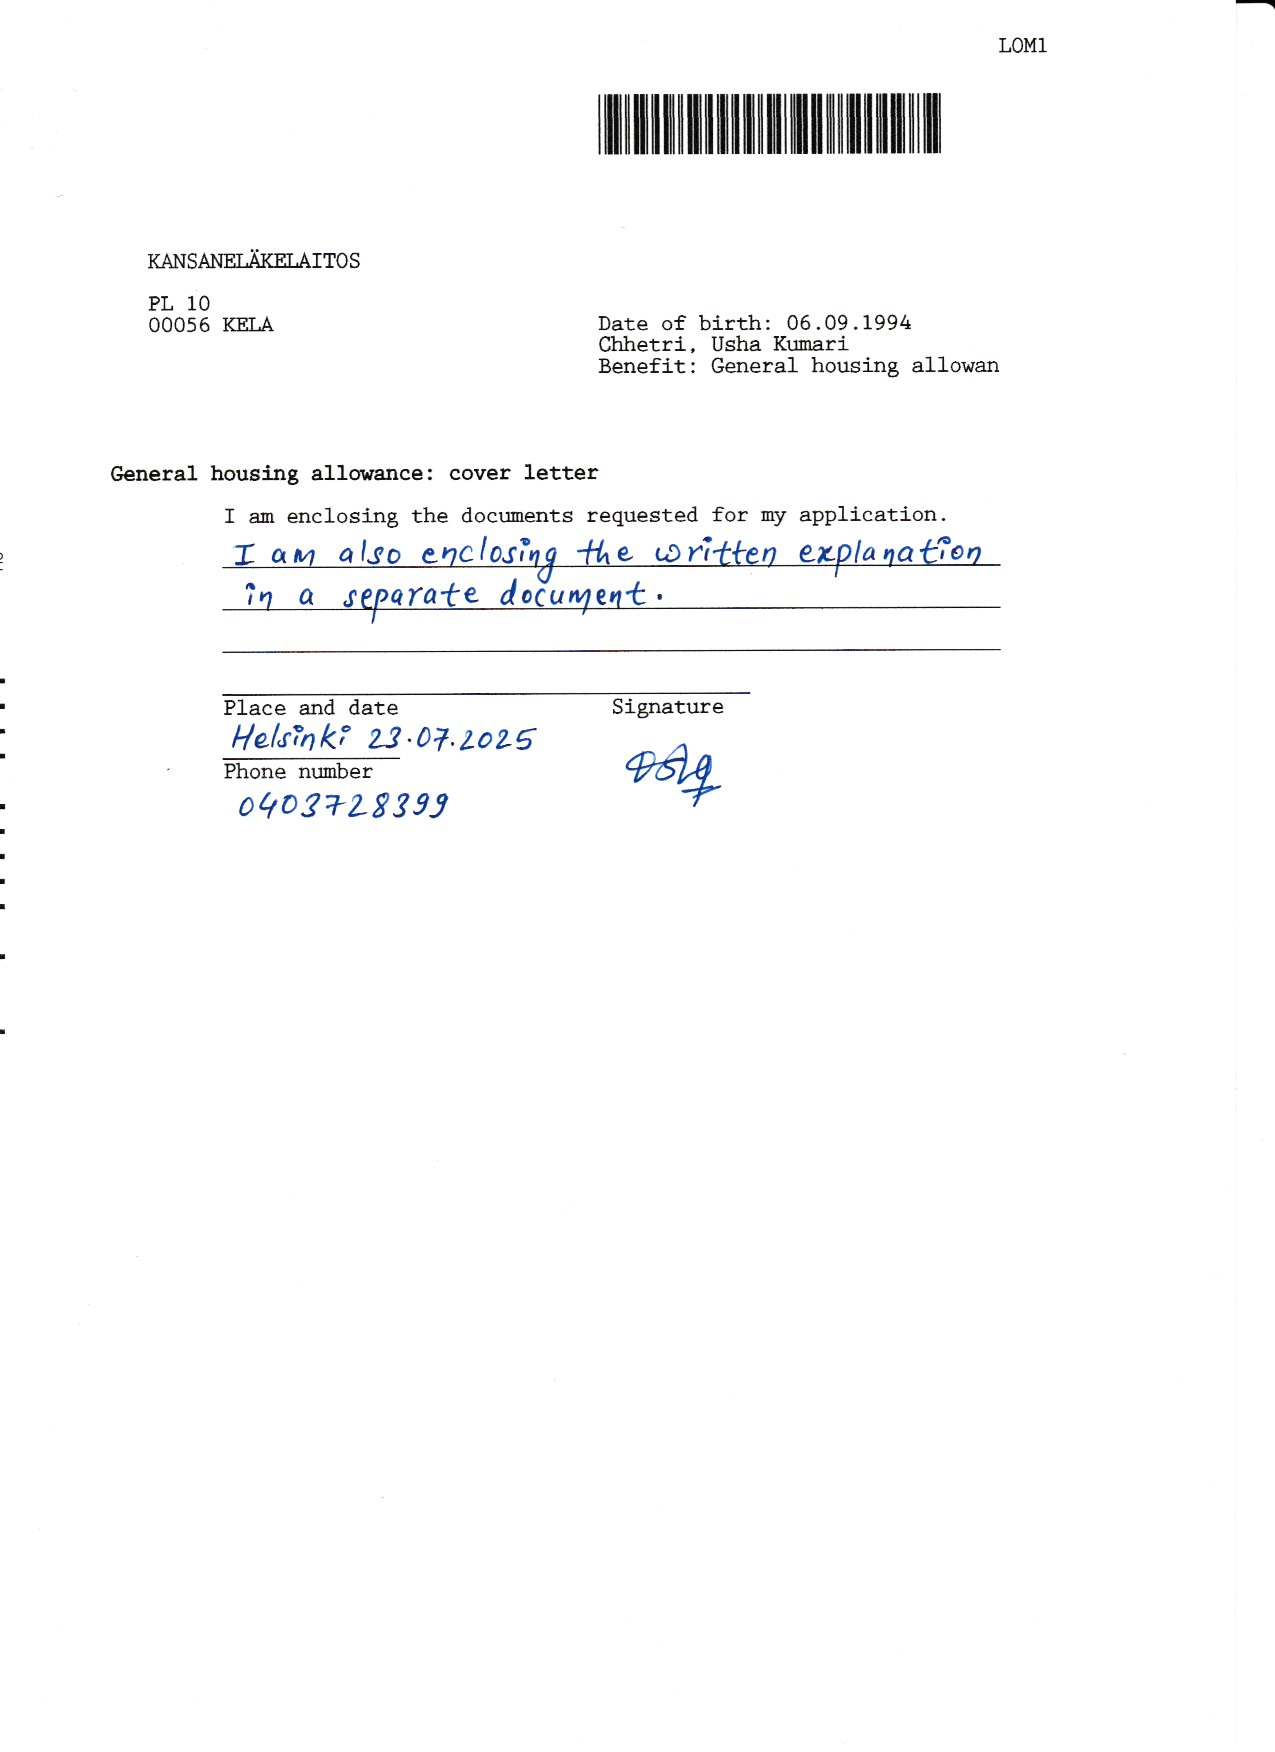 LOM1
KANSANELÄKELAITOS
PL 10
00056 KELA
Date of birth: 06.09.1994
Chhetri, Usha Kumari
Benefit: General housing allowan
General housing allowance: cover letter
I am enclosing the documents requested for my application.
I am also enclosing the written explanation
in a separate document.
Place and date
Signature
Helsinki 23.07.2025
Phone number
0403728399